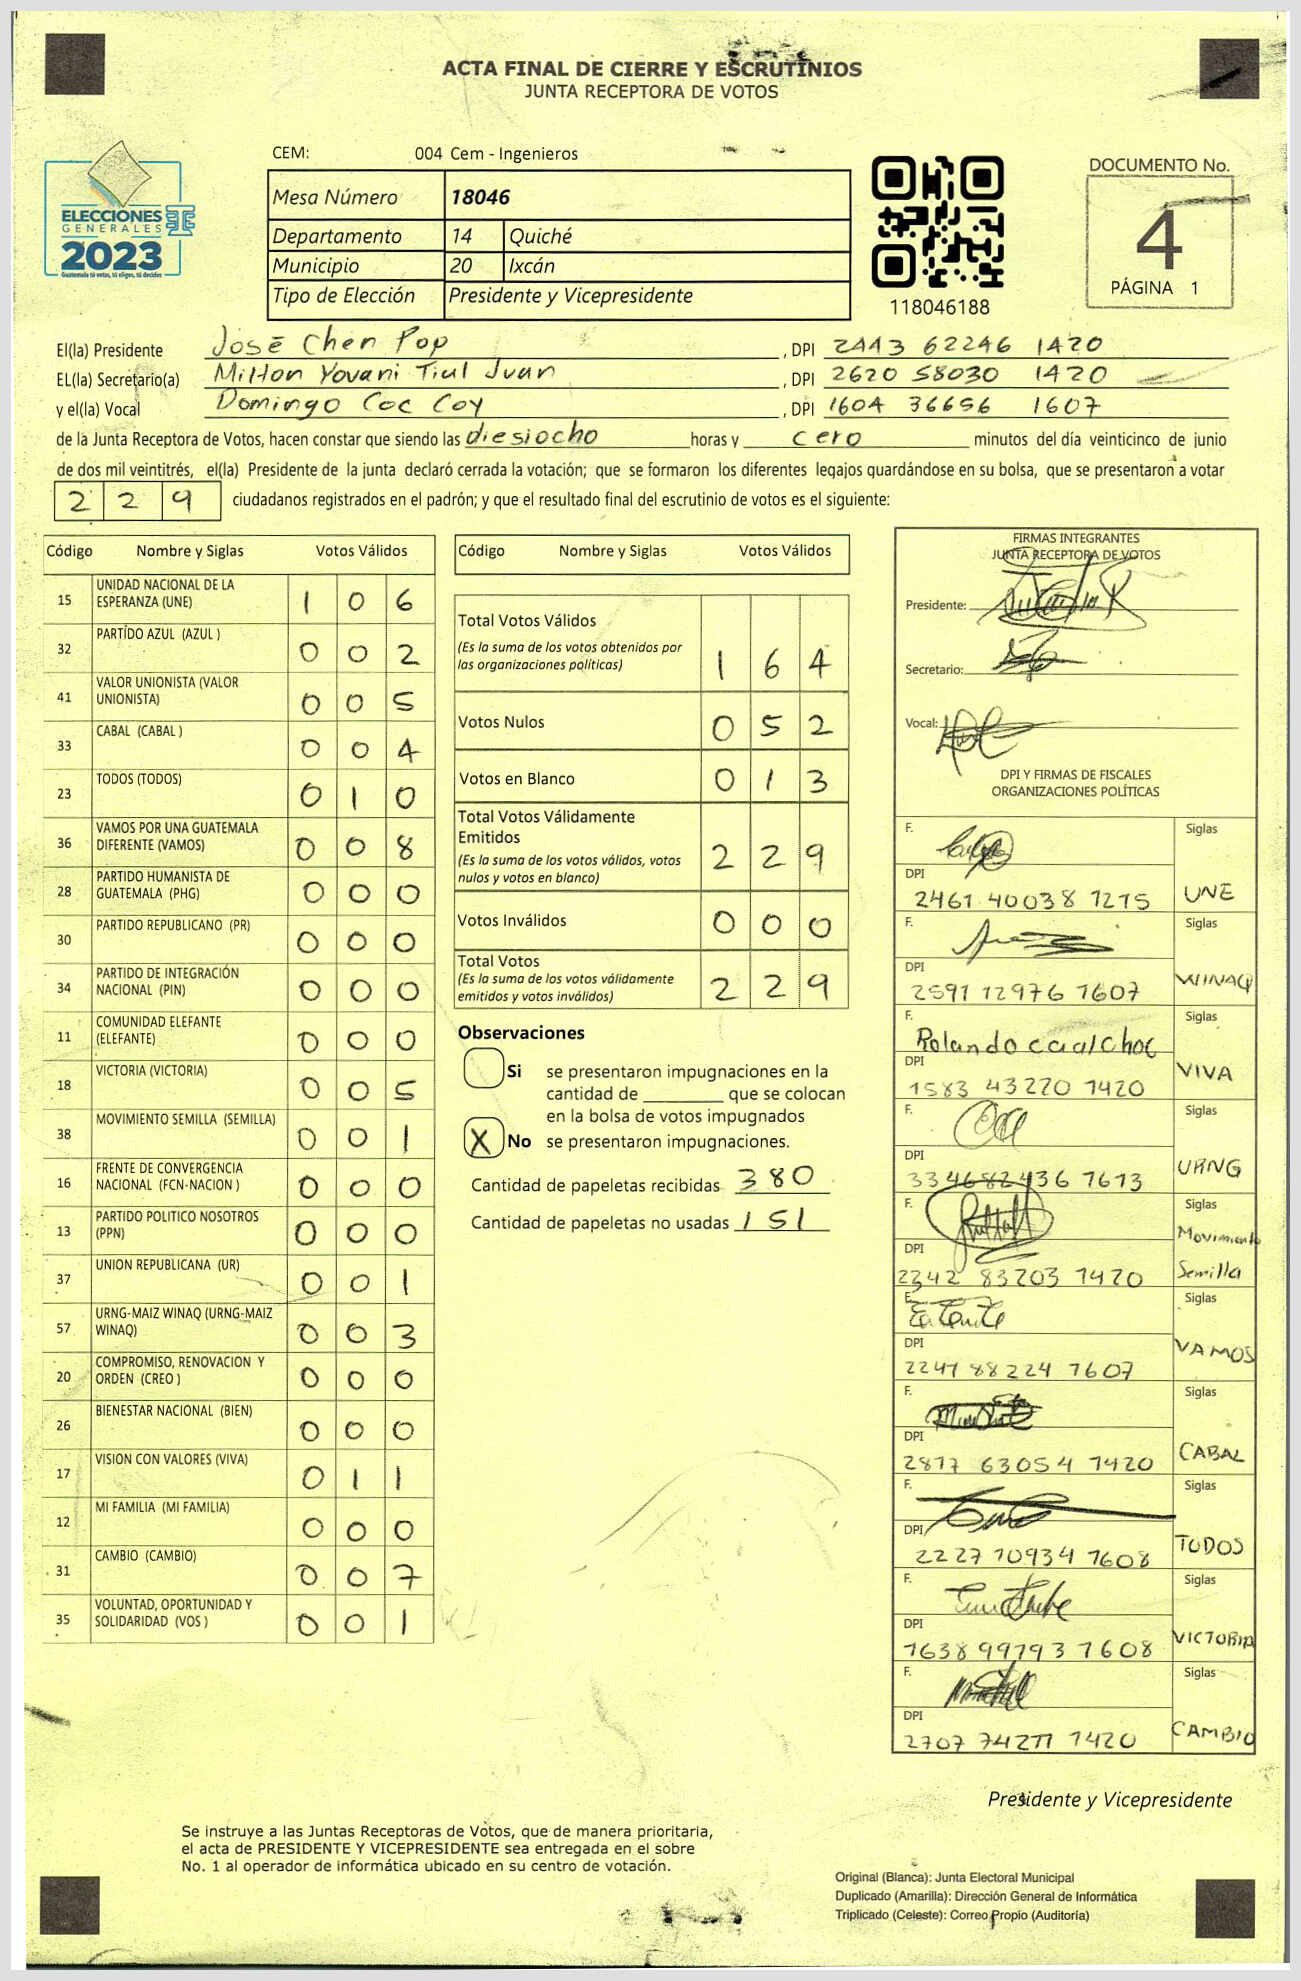 ACTA FINAL DE CIERRE Y ESCRUTINIOS
JUNTA RECEPTORA DE VOTOS
ELECCIONES
GENERALES
2023
Guatemala tú votas, tú eliges, tú decides
CEM: 004 Cem - Ingenieros
Mesa Número 18046
Departamento 14 Quiché
Municipio 20 Ixcán
Tipo de Elección Presidente y Vicepresidente
118046188
DOCUMENTO No.
4
PÁGINA 1
El(la) Presidente José Chen Pop , DPI 2443 62246 1420
EL(la) Secretario(a) Milton Yovani Tiul Juan , DPI 2620 58030 1420
y el(la) Vocal Domingo Coc Coy , DPI 1604 36656 1607
de la Junta Receptora de Votos, hacen constar que siendo las diesiocho horas y cero minutos del día veinticinco de junio
de dos mil veintitrés, el(la) Presidente de la junta declaró cerrada la votación; que se formaron los diferentes legajos guardándose en su bolsa, que se presentaron a votar
2 2 9 ciudadanos registrados en el padrón; y que el resultado final del escrutinio de votos es el siguiente:
Código Nombre y Siglas Votos Válidos
15 UNIDAD NACIONAL DE LA ESPERANZA (UNE) 1 0 6
32 PARTIDO AZUL (AZUL ) 0 0 2
41 VALOR UNIONISTA (VALOR UNIONISTA) 0 0 5
33 CABAL (CABAL ) 0 0 4
23 TODOS (TODOS) 0 1 0
36 VAMOS POR UNA GUATEMALA DIFERENTE (VAMOS) 0 0 8
28 PARTIDO HUMANISTA DE GUATEMALA (PHG) 0 0 0
30 PARTIDO REPUBLICANO (PR) 0 0 0
34 PARTIDO DE INTEGRACIÓN NACIONAL (PIN) 0 0 0
11 COMUNIDAD ELEFANTE (ELEFANTE) 0 0 0
18 VICTORIA (VICTORIA) 0 0 5
38 MOVIMIENTO SEMILLA (SEMILLA) 0 0 1
16 FRENTE DE CONVERGENCIA NACIONAL (FCN-NACION ) 0 0 0
13 PARTIDO POLITICO NOSOTROS (PPN) 0 0 0
37 UNION REPUBLICANA (UR) 0 0 1
57 URNG-MAIZ WINAQ (URNG-MAIZ WINAQ) 0 0 3
20 COMPROMISO, RENOVACION Y ORDEN (CREO ) 0 0 0
26 BIENESTAR NACIONAL (BIEN) 0 0 0
17 VISION CON VALORES (VIVA) 0 1 1
12 MI FAMILIA (MI FAMILIA) 0 0 0
31 CAMBIO (CAMBIO) 0 0 7
35 VOLUNTAD, OPORTUNIDAD Y SOLIDARIDAD (VOS ) 0 0 1
Código Nombre y Siglas Votos Válidos
Total Votos Válidos
(Es la suma de los votos obtenidos por
las organizaciones políticas) 1 6 4
Votos Nulos 0 5 2
Votos en Blanco 0 1 3
Total Votos Válidamente
Emitidos
(Es la suma de los votos válidos, votos
nulos y votos en blanco) 2 2 9
Votos Inválidos 0 0 0
Total Votos
(Es la suma de los votos válidamente
emitidos y votos inválidos) 2 2 9
Observaciones
Si se presentaron impugnaciones en la
cantidad de ________ que se colocan
en la bolsa de votos impugnados
X No se presentaron impugnaciones.
Cantidad de papeletas recibidas 380
Cantidad de papeletas no usadas 151
FIRMAS INTEGRANTES
JUNTA RECEPTORA DE VOTOS
Presidente:
Secretario:
Vocal:
DPI Y FIRMAS DE FISCALES
ORGANIZACIONES POLÍTICAS
F. Siglas
DPI
2461 40038 1215 UNE
F. Siglas
DPI
2591 12976 1607 WINAQ
F. Siglas
Rolando caal choc
DPI
1583 43220 1420 VIVA
F. Siglas
DPI
334682436 1613 URNG
F. Siglas
DPI
2342 83203 1420 Movimiento Semilla
F. Siglas
DPI
2241 88224 1607 VAMOS
F. Siglas
DPI
2817 63054 1420 CABAL
F. Siglas
DPI
2227 10934 1608 TODOS
F. Siglas
DPI
1638 99793 1608 VICTORIA
F. Siglas
DPI
2707 74277 1420 CAMBIO
Presidente y Vicepresidente
Se instruye a las Juntas Receptoras de Votos, que de manera prioritaria,
el acta de PRESIDENTE Y VICEPRESIDENTE sea entregada en el sobre
No. 1 al operador de informática ubicado en su centro de votación.
Original (Blanca): Junta Electoral Municipal
Duplicado (Amarilla): Dirección General de Informática
Triplicado (Celeste): Correo Propio (Auditoría)